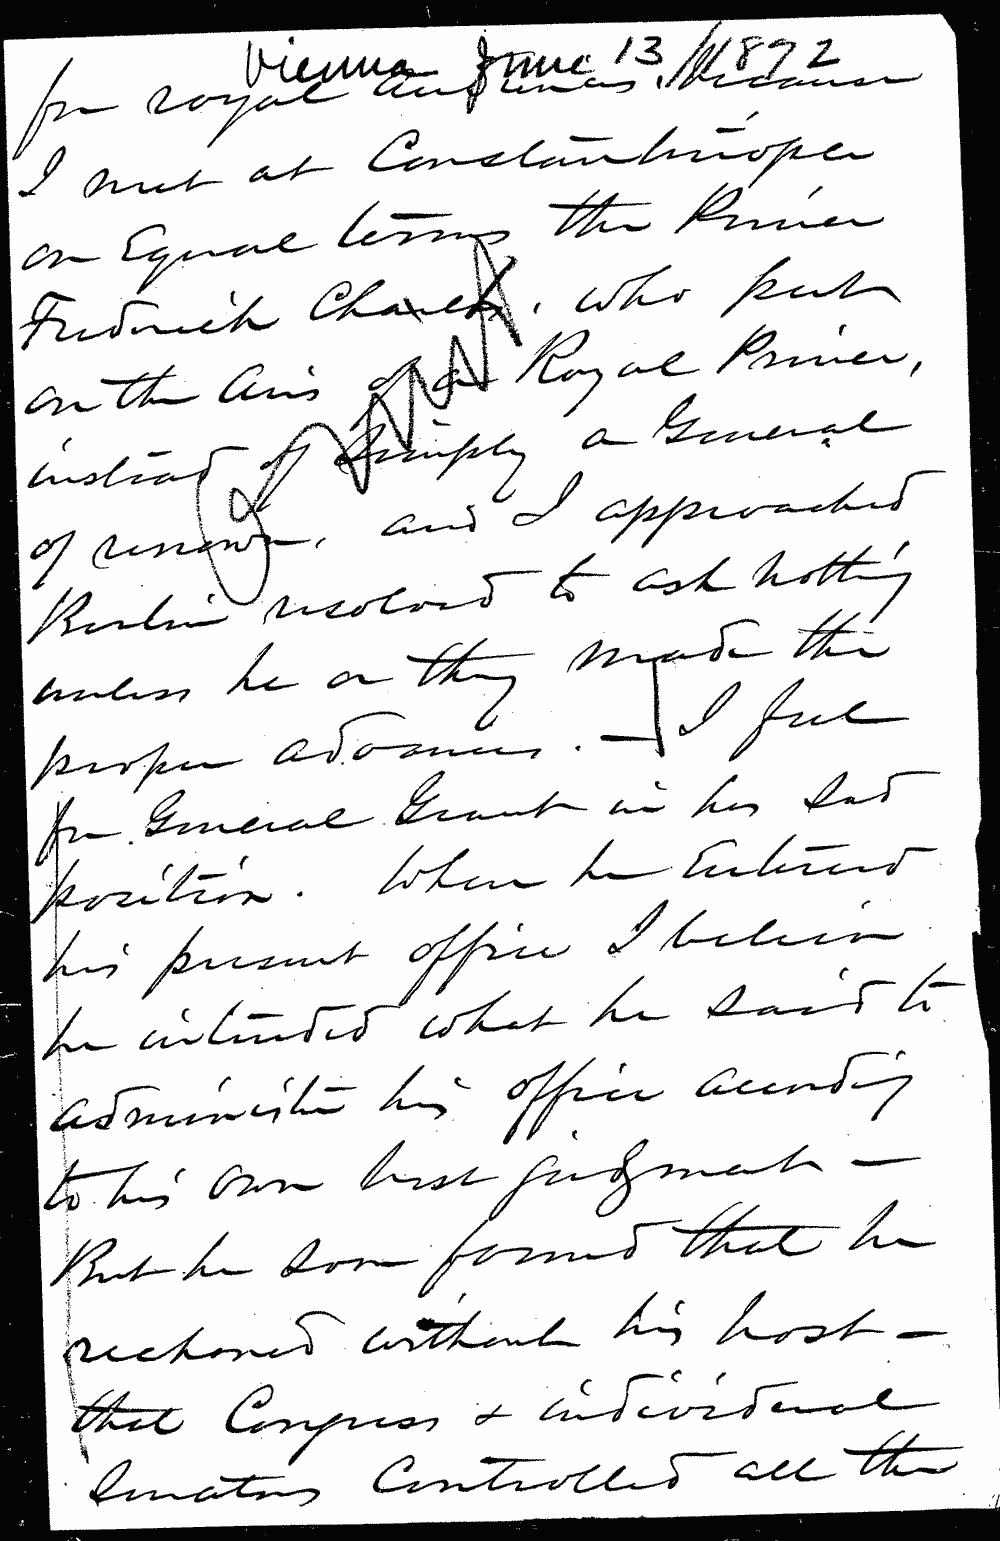 Vienna June 13, 1872
for royal audiences, because
I met at Constantinople
on Equal terms the Prince
Frederick Charles, who put
on the airs of a Royal Prince,
instead of Simply a General
of renown, and I approached
Berlin resolved to ask nothing
unless he or they made the
proper advances. — I feel
for General Grant in his sad
position. When he Entered
his present office I believe
he intended what he said to
administer his office according
to his own best judgment —
But he soon found that he
reckoned without his host —
that Congress & individual
Senators Controlled all the